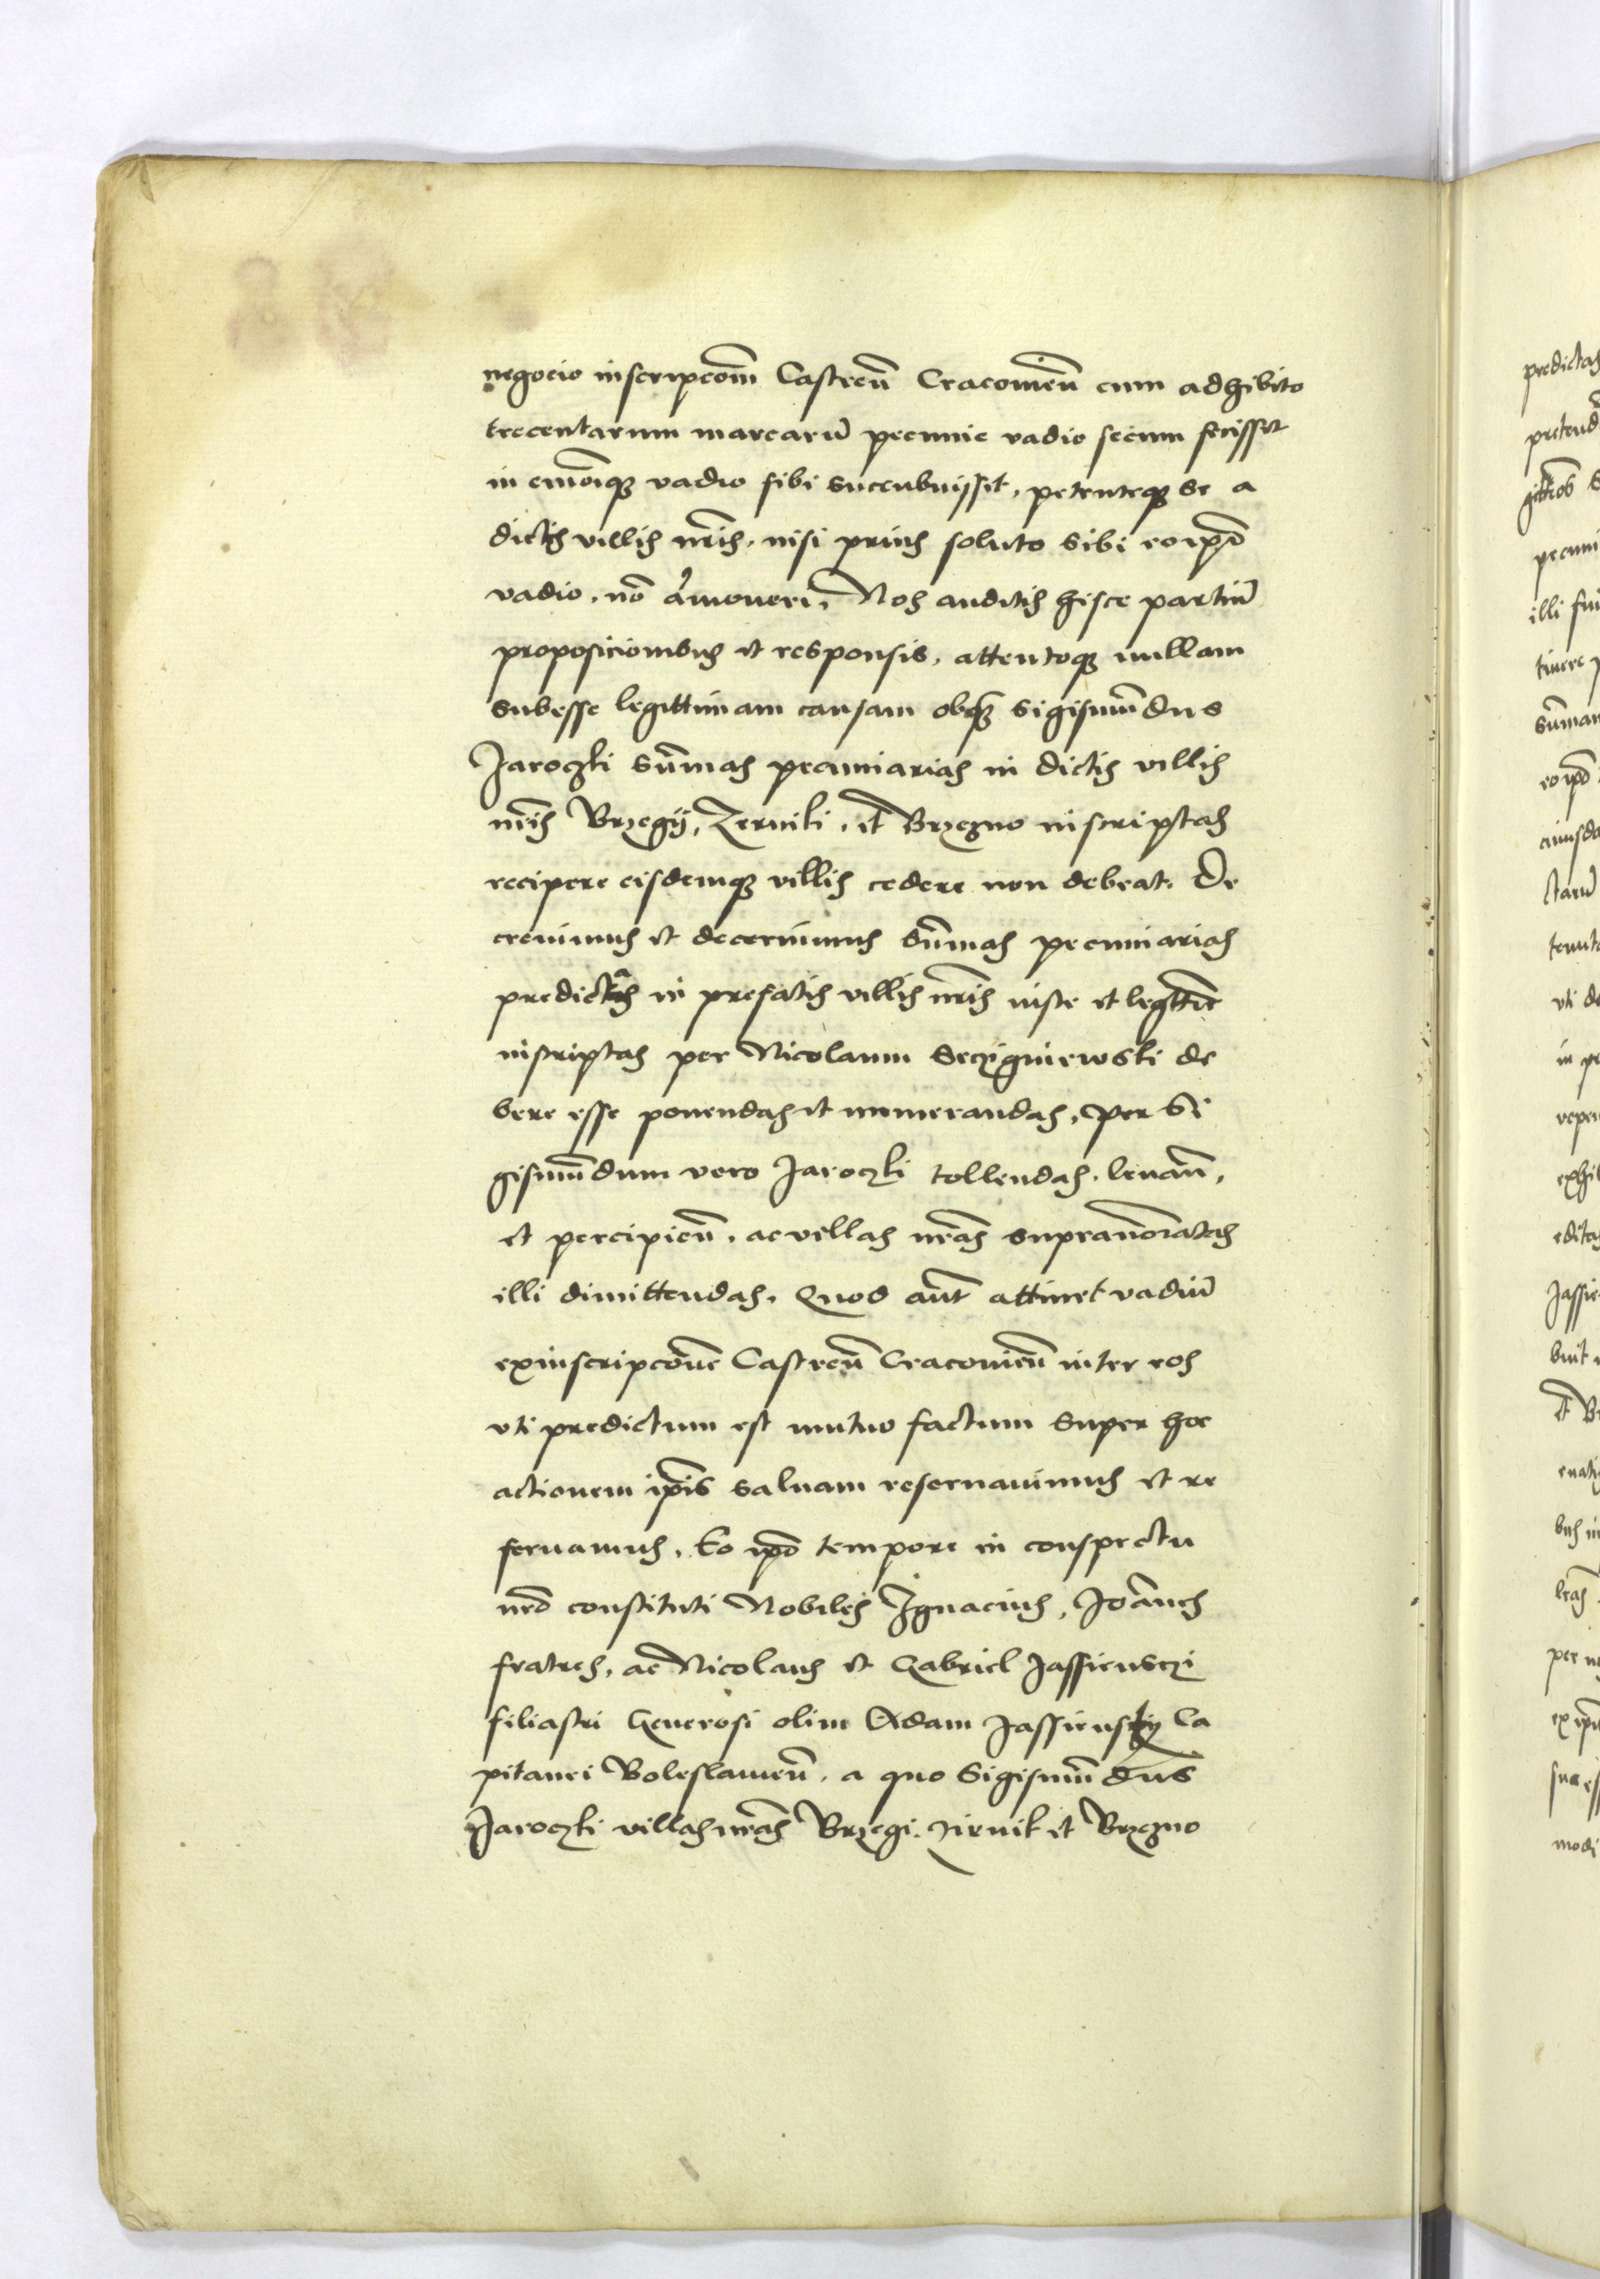 negocio inscripcōm Castreñ Cracovieñ cum adhibito
trecentarum marcarū pecunie vadio secum fecisset
in vadio sibi succubuisset, petenteqȝ se a
dictis villis nr̄is, nisi prius soluto sibi eoip̄o
vadio, nō amoveri, Nos auditis hisce partiū
proposicionibus et responsis, attentoqȝ nullam
subesse legittimam causam obqȝ Sigismūdus
Jaroczki Sūmas pecuniarias in dictis villis
nr̄is Brzegij, Zerniki, et Brzezno inscriptas
recipere eisdemqȝ villis cedere non debeat. De
crevimus et decernimus sūmas pecuniarias
predictas in prefatis villis nr̄is iuste et legittīe
inscriptas per Nicolaum Seczigniewski de
bere esse ponendas et numerandas, per Si
gismūdum vero Jaroczki tollendas, levañ,
et percipieñ, ac villas nr̄as supranōiatas
illi dimittendas, Quod aūt attinet vadiū
exinscripcōne Castreñ Cracovieñ inter eos
vti predictum est mutuo factum super hoc
actionem ip̄is salvam reservavimus et re
servamus, Eo ip̄o tempore in conspectu
nr̄o constituti Nobiles Ignacius, Joānes
fratres, ac Nicolaus et Gabriel Jassienski
filiastri Generosi olim Adam Jassiensky Ca
pitanei Boleslavieñ, a quo Sigismūdus
Jaroczki villas nr̄as Brzegi, Zirnik et Brzezno
predictas
pretend
pecuni
illi fui
tinere
Sūmam
eoip̄o
ctarū
vti de
in pe
exhi
editas
Jassie
buit
et B
per
modi